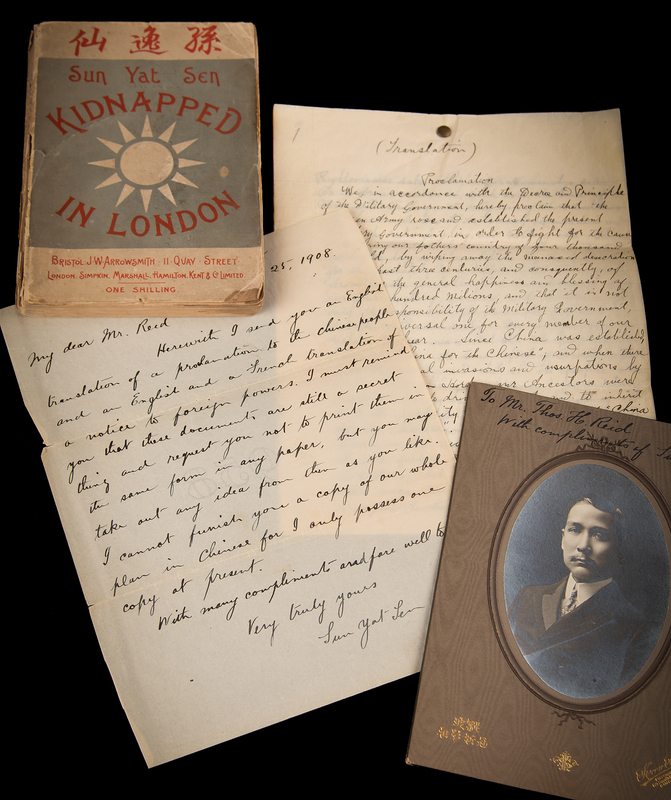 仙逸孫
Sun Yat Sen
KIDNAPPED
IN LONDON
BRISTOL J.W. ARROWSMITH 11 QUAY STREET
LONDON. SIMPKIN, MARSHALL, HAMILTON, KENT & CO LIMITED
ONE SHILLING
25, 1908.
My dear Mr. Reid
Herewith I send you an English
translation of a proclamation to the chinese people
and an English and a French translation of
a notice to foreign powers. I must remind
you that these documents are still a secret
thing and request you not to print them in
the same form in any paper, but you may
take out any idea from them as you like.
I cannot funish you a copy of our whole
plan in Chinese for I only possess one
copy at present.
With many compliments and fare well to
Very truly yours
Sun Yat Sen
1
(Translation)
Proclamation
We, in accordance with the Decree and Principle
of the Military Government, hereby proclaim that the
Army rose and established the present
Government, in order to fight for the cause
our fathers' country of four thousand
by wiping away the
past three centuries, and consequently, of
the general happiness and blessing of
hundred millions, and that it is not
responsibility of the Military Government,
versal one for every member of our
Since China was established,
for the Chinese, and when there
invasions and usurpations by
our Ancestors were
to inherit
China
To Mr. Thos. H. Reid
With compliments of